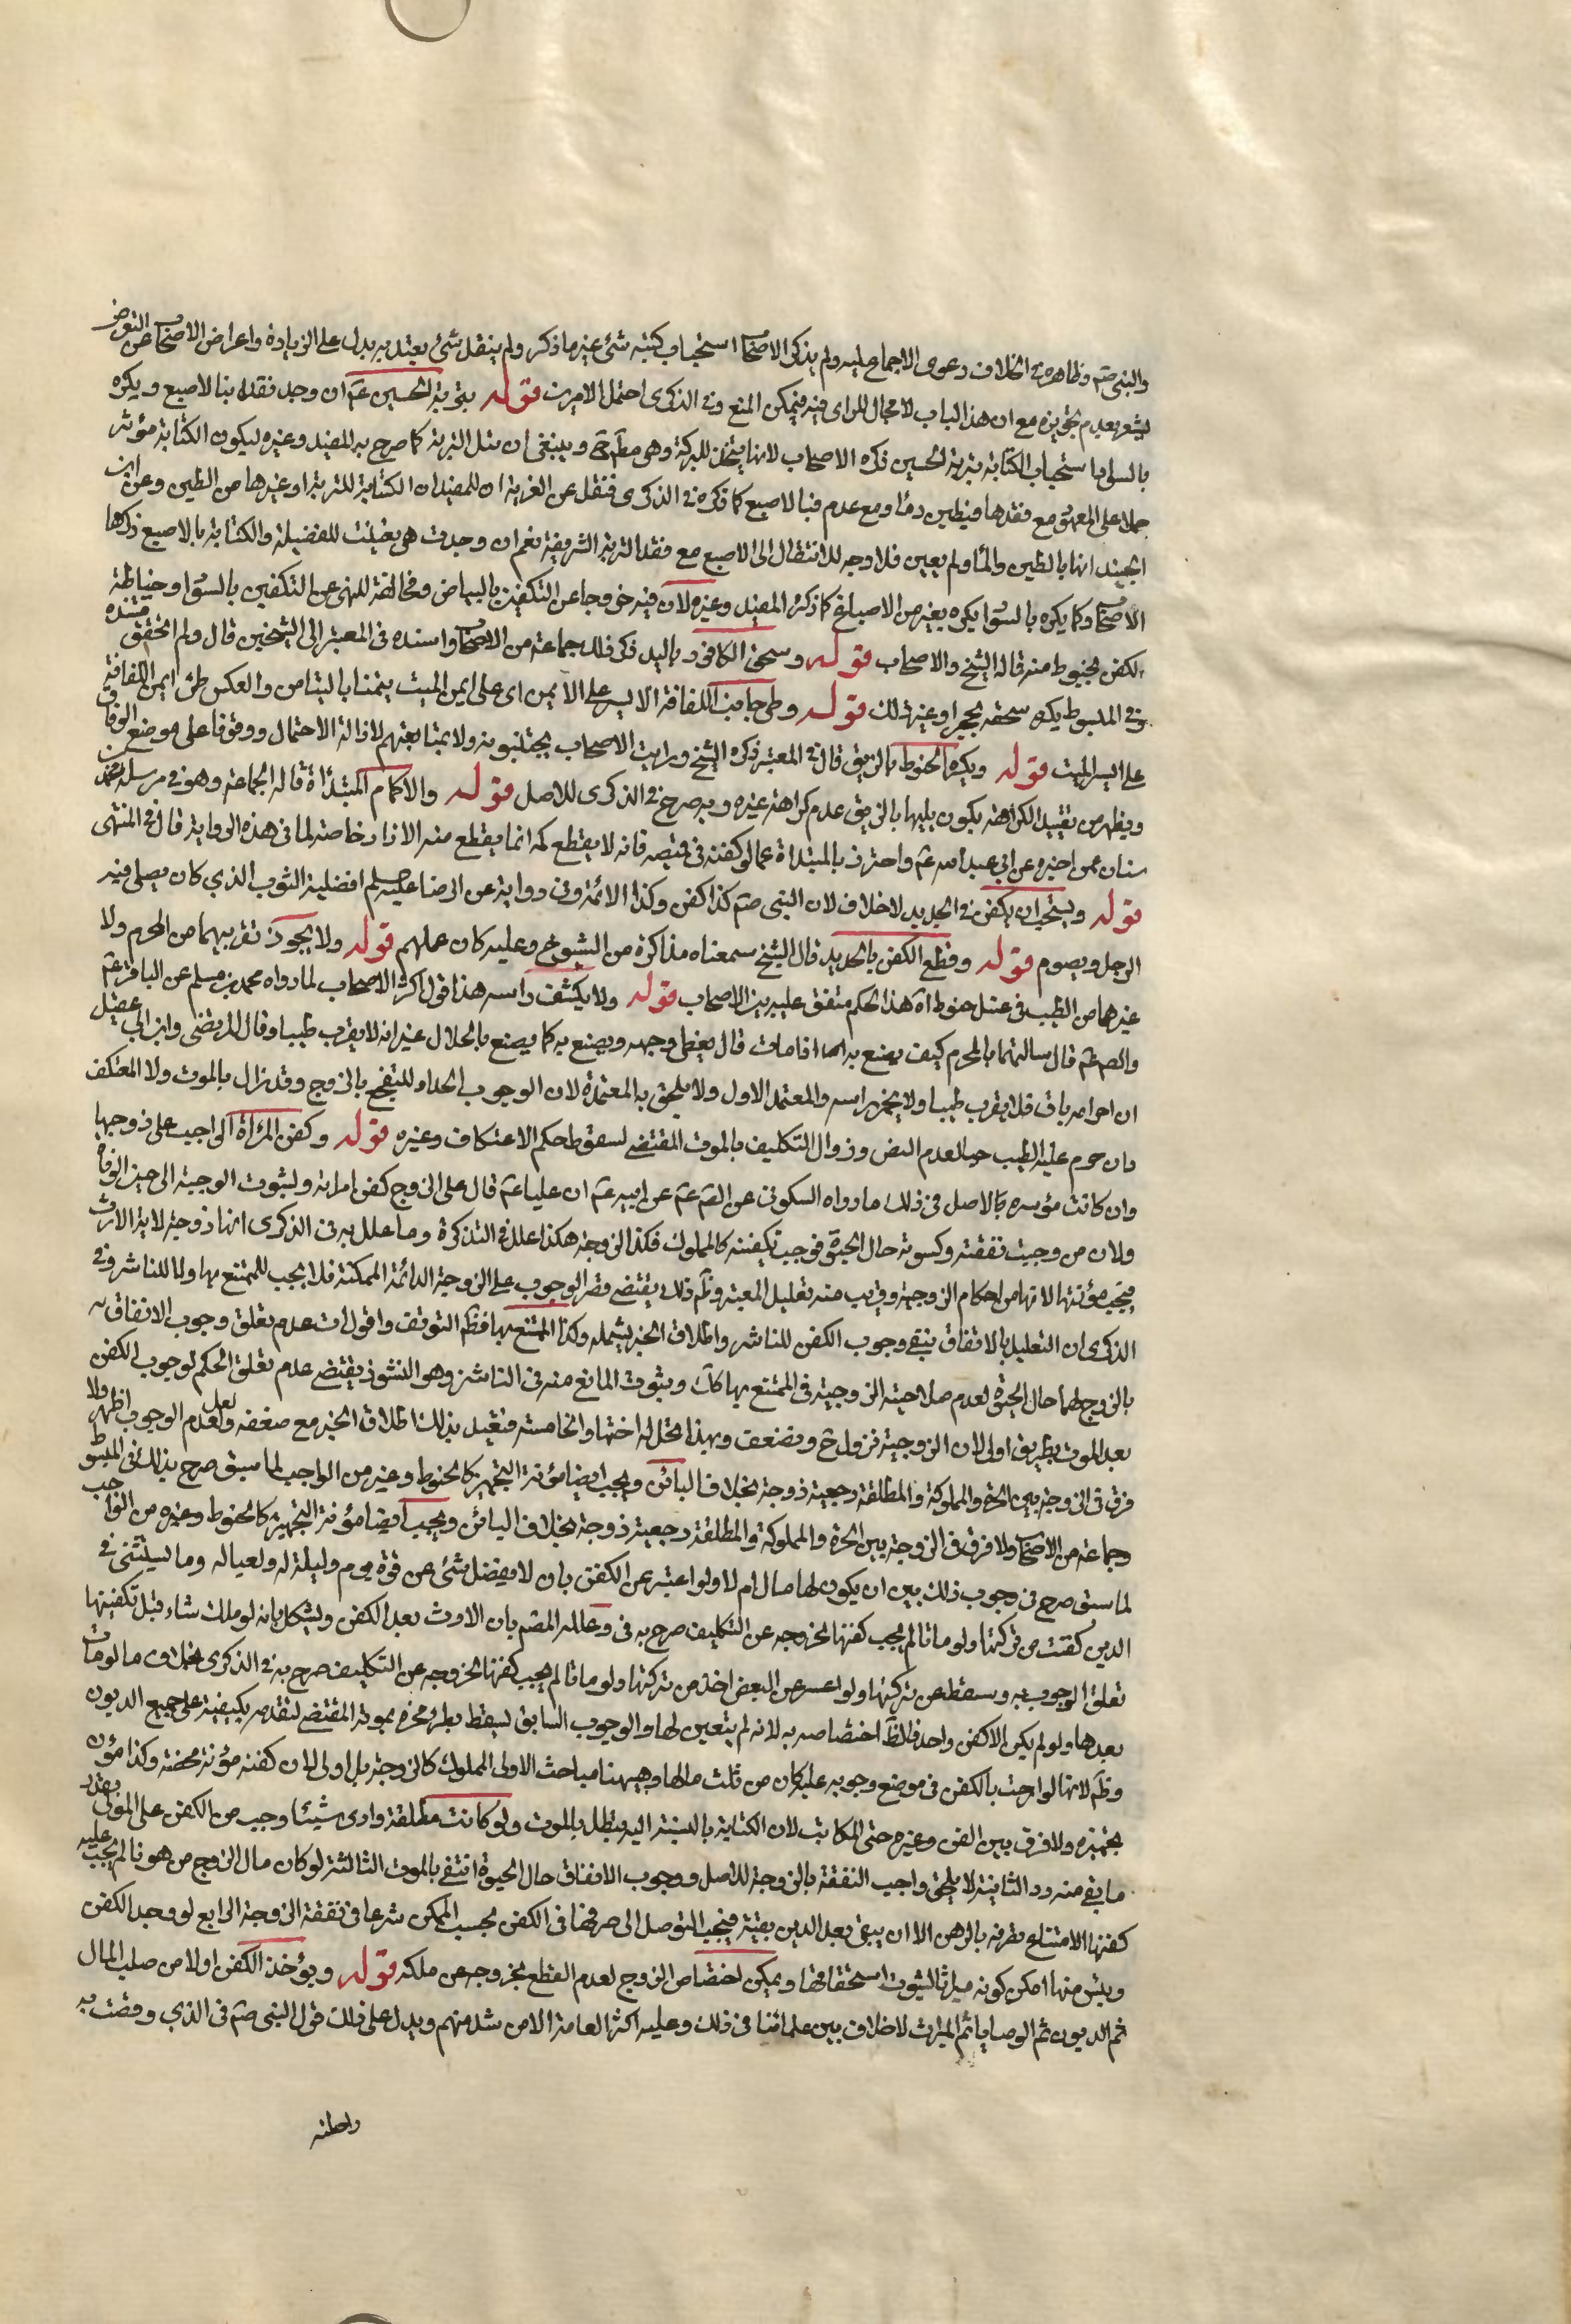 والنبي صم وظاهره في الخلاف دعوى الاجماع عليه ولم يذكر الاصحاب استحباب كتبه شئ غير ما ذكر ولم ينقل شئ يعتد به يدل على الزيادة واعراض الاصحاب عن التعرض
يشعر بعدم تجويزه مع ان هذا الباب لا مجال للراى فيه فيمكن المنع وفي الذكرى احتمل الامرين قوله بتربة الحسين عم ان وجد فقد بالاصبع ويكره
بالسواد استحباب الكتابة بتربة الحسين ذكره الاصحاب لانها يتخذ للبركة وهي مط ح وينبغى ان تبل التربة كما صرح به المفيد وغيره ليكون الكتابة مؤثرة
حملا على المعهود مع فقدها فبطين وماء ومع عدمه فبالاصبع كما ذكره في الذكرى فنقل عن الغرية ان للمفيد ان الكتابة للتربة او غيرها من الطين وعن ابن
الجنيد انها بالطين والماء ولم يعين فلا وجه للانتقال الى الاصبع مع فقد التربة الشريفة نعم ان وجدت هي تعينت للفضيلة والكتابة بالاصبع ذكرها
الاصحاب وكما يكره بالسواد يكره بغيره من الاصباغ كما ذكره المفيد وغيره لان فيه خروجا عن التكفين بالبياض ومخالفة للنهى عن التكفين بالسواد وخياطة
الكفن بخيوط منه قاله الشيخ والاصحاب قوله وسحق الكافور باليد ذكر ذلك جماعة من الاصحاب واسنده في المعتبر الى الشيخين قال ولم اتحقق مستنده
وفي المبسوط يكره سحقه بحجر او غير ذلك قوله وطى جانب اللفافة الايسر على الايمن اى على ايمن الميت يتمنا بالتيامن والعكس طى ايمن اللفافة
على ايسر الميت قوله ويكره الخيوط بالريق قال في المعتبر ذكره الشيخ ورايت الاصحاب يجتنبونه ولا بمتابعتهم لازالة الاحتمال ووقوفا على موضع الوفاق
ويظهر من تقييد الكراهة بكون بلها بالريق عدم كراهة غيره وبه صرح في الذكرى للاصل قوله والاكمام المبتدأة قاله الجماعة وهو في مرسلة محمد بن
سنان عمن اخبره عن ابى عبد الله عم واحترز بالمبتدأة عما لو كفنه في قميصه فانه لا يقطع كمه انما يقطع منه الازرار خاصة لما في هذه الرواية قال في المنتهى
قوله ويستحب ان يكفن في الجديد لا خلاف لان النبي صم كذا كفن وكذا الائمة وفي رواية عن الرضا عليه السلم افضلية الثوب الذي كان يصلى فيه
الرجل ويصوم قوله وقطع الكفن بالحديد قال الشيخ سمعناه مذاكرة من الشيوخ وعليه كان عملهم قوله ولا يجوز تقريبهما من المحرم ولا
غيرهما من الطيب في غسل حنوط آه هذا الحكم متفق عليه بين الاصحاب قوله ولا يكشف راسه هذا قول اكثر الاصحاب لما رواه محمد بن مسلم عن الباقر عم
والص عم قال سالتهما بالمحرم كيف يصنع به اذا مات قال يغطى وجهه ويصنع به كما يصنع بالحلال غير انه لا يقرب طيبا وقال المرتضى وابن ابى عقيل
ان احرامه باق فلا يقرب طيبا ولا يخمر راسه والمعتمد الاول ولا يلحق به المعتدة لان الوجوب الحداد للتفجع بالزوج وقد زال بالموت ولا المعتكف
وان حرم عليه الطيب حيا لعدم النص وزوال التكليف بالموت المقتضى لسقوط حكم الاعتكاف وغيره قوله وكفن المرأة الواجب على زوجها
وان كانت مؤسرة بالاصل في ذلك ما رواه السكونى عن الص عم عن ابيه عم ان عليا عم قال على الزوج كفن امراته ولثبوت الزوجية الى حين الوفاة
ولان من وجبت نفقته وكسوته حال الحيوة فوجب تكفينه كالمملوك فكذا الزوجة هكذا علل في التذكرة وما علل به في الذكرى انها زوجة لاية الارث
فيجب مؤنتها لانها من احكام الزوجية وقريب منه تعليل المعتبر وظم ذلك يقتضى قصر الوجوب على الزوجة الدائمة الممكنة فلا يجب للممتنع بها ولا للناشز وفي
الذكرى ان التعليل بالانفاق ينفى وجوب الكفن للناشز واطلاق الخبر يشمله وكذا المتمتع بها فظم التوقف واقول ان عدم تعلق وجوب الانفاق
بالزوج لهما حال الحيوة لعدم صلاحية الزوجية في المتمتع بها لذلك وثبوت المانع منه في الناشز وهو النشوز يقتضى عدم تعلق الحكم لوجوب الكفن
بعد الموت بطريق اولى لان الزوجية تزول ح وتضعف وبهذا يحل له اختها والخامسة فتقيد بذلك اطلاق الخبر مع ضعفه ولعل عدم الوجوب اظهر ولا
فرق في الزوجة بين الحرة والمملوكة والمطلقة رجعية زوجة بخلاف البائن ويجب ايضا مؤنة التجهيز كالحنوط وغيره من الواجب لما سبق صرح بذلك في المبسوط
وجماعة من الاصحاب ولا فرق في الزوجة بين الحرة والمملوكة والمطلقة رجعية زوجة بخلاف البائن ويجب ايضا مؤنة التجهيز كالحنوط وغيره من الواجب
لما سبق صرح في وجوب ذلك بين ان يكون لها مال ام لا ولو اعسر عن الكفن بان لا يفضل شئ عن قوة يوم وليلة له ولعياله وما يستثنى في
الدين كفنت من تركتها ولو ماتا لم يجب كفنها لخروجه عن التكليف صرح به في وعلله المصم بان الارث بعد الكفن ويشكل بانه لو ملك شاء قبل تكفينها
تعلق الوجوب به وسقط من تركتها ولو اعسر عن البعض اخذ من تركتها ولو ماتا لم يجب كفنها لخروجه عن التكليف صرح به في الذكرى بخلاف ما لو مات
بعدها ولو لم يكن الا كفن واحد فالظ اختصاصه به لانه لم يتعين لها والوجوب السابق يسقط بطرو عجزه بموته المقتضى لتقدمه بكيفية على جميع الديون
وظم لانها لو اوصت بالكفن في موضع وجوبه عليه كان من ثلث مالها وههنا مباحث الاولى المملوك كالزوجة بل اولى لان كفنه مؤنة محضة وكذا مؤن
تجهيزه ولا فرق بين القن وغيره حتى المكاتب لان الكتابة بالنسبة اليه تبطل بالموت ولو كانت مطلقة وادى شيئا وجب من الكفن على المولى بقدر
ما بقى منه رد الثانية لا يلحق واجب النفقة بالزوجة للاصل ووجوب الانفاق حال الحيوة انتفى بالموت الثالثة لو كان مال الزوج مرهونا لم يجب عليه
كفنها لامتناع تصرفه بالرهن الا ان يبقى بعد الدين بقية فيجب التوصل الى صرفها في الكفن بحسب الممكن شرعا في نفقة الزوجة الرابع لو وجد الكفن
ويئس منها امكن كونه ميراثا لثبوت استحقاقها ويمكن اختصاص الزوج لعدم القطع بخروجه عن ملكه قوله ويؤخذ الكفن اولا من صلب المال
ثم الديون ثم الوصايا ثم الميراث لا خلاف بين علمائنا في ذلك وعليه اكثر العامة الا من شد منهم ويدل على ذلك قول النبي صم في الذي وقصت به
راحلته